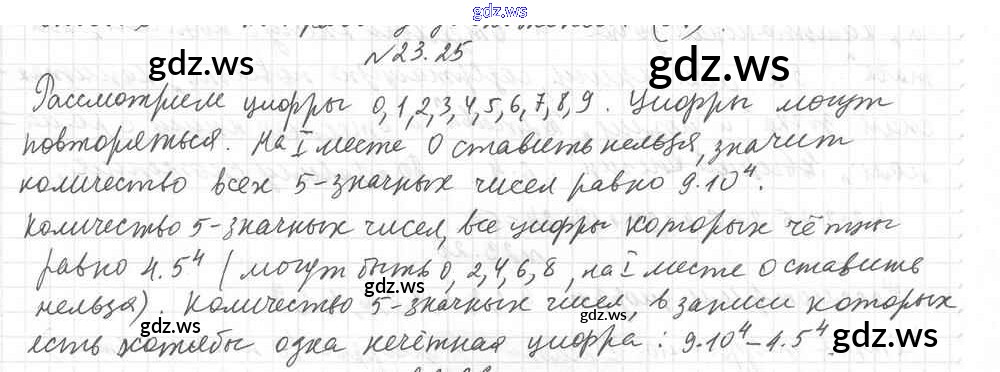 gdz.ws
№23.25
gdz.ws gdz.ws
Рассмотрим цифры 0,1,2,3,4,5,6,7,8,9. Цифры могут
повторяться. На I месте 0 ставить нельзя, значит
количество всех 5-значных чисел равно 9·10⁴.
Количество 5-значных чисел, все цифры которых чётны
равно 4·5⁴ (могут быть 0, 2, 4, 6, 8, на I месте 0 ставить
gdz.ws gdz.ws
нельзя). Количество 5-значных чисел, в записи которых
gdz.ws gdz.ws gdz.ws
есть хотябы одна нечётная цифра: 9·10⁴-4·5⁴.